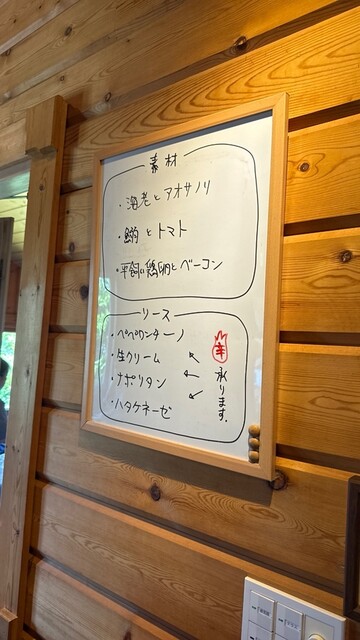 素材
・海老とアオサノリ
・鰯とトマト
・平飼い鶏卵とベーコン
ソース
・ペペロンチーノ
・生クリーム
・ナポリタン
・ハタケネーゼ
辛
承ります。